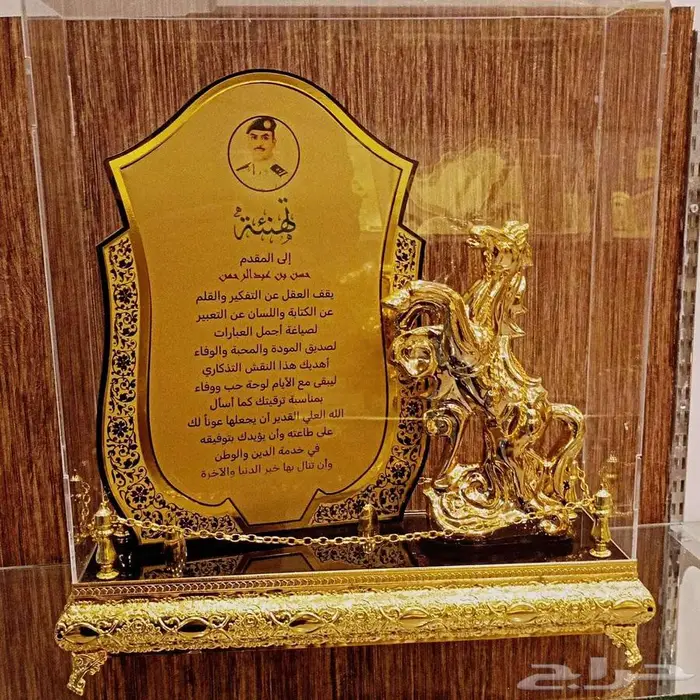 تهنئة
إلى المقدم
حسن بن عبدالرحمن
يقف العقل عن التفكير والقلم
عن الكتابة واللسان عن التعبير
لصياغة أجمل العبارات
لصديق المودة والمحبة والوفاء
أهديك هذا النقش التذكاري
ليبقى مع الأيام لوحة حب ووفاء
بمناسبة ترقيتك كما أسأل
الله العلي القدير أن يجعلها عوناً لك
على طاعته وأن يؤيدك بتوفيقه
في خدمة الدين والوطن
وأن تنال بها خير الدنيا والآخرة
حراج